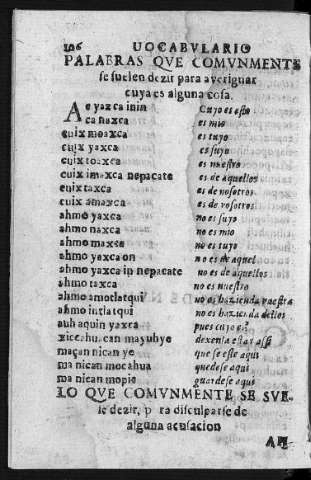 106 UOCABVLARIO
PALABRAS QVE COMVNMENTE
se suelen dezir para averiguar
cuya es alguna cosa.
Ac yaxca inin Cuyo es esto
aca naxca es mio
cuix moaxca es tuyo
cuix yaxca es suyo
cuix toaxca es nuestro
cuix imaxca nepacate es de aquellos
cuix taxca es de nosotros
cuix amaxca es de vosotros
ahmo yaxca no es suyo
ahmo naxca no es mio
ahmo maxca no es tuyo
ahmo yaxca on no es de aquel
ahmo yaxca in nepacate no es de aquellos
ahmo taxca no es nuestro
ahmo amotlatqui no es hazienda vuestra
ahmo intlatqui no es hazienda dellos
auh aquin yaxca pues cuyo es?
can mayuhye dexenla estar assi
maçan nican ye que se este aqui
ma nican mocahua quedese aqui
ma nican mopie guardese aqui
LO QVE COMVNMENTE SE SVE-
le dezir, para disculparse de
alguna acusacion